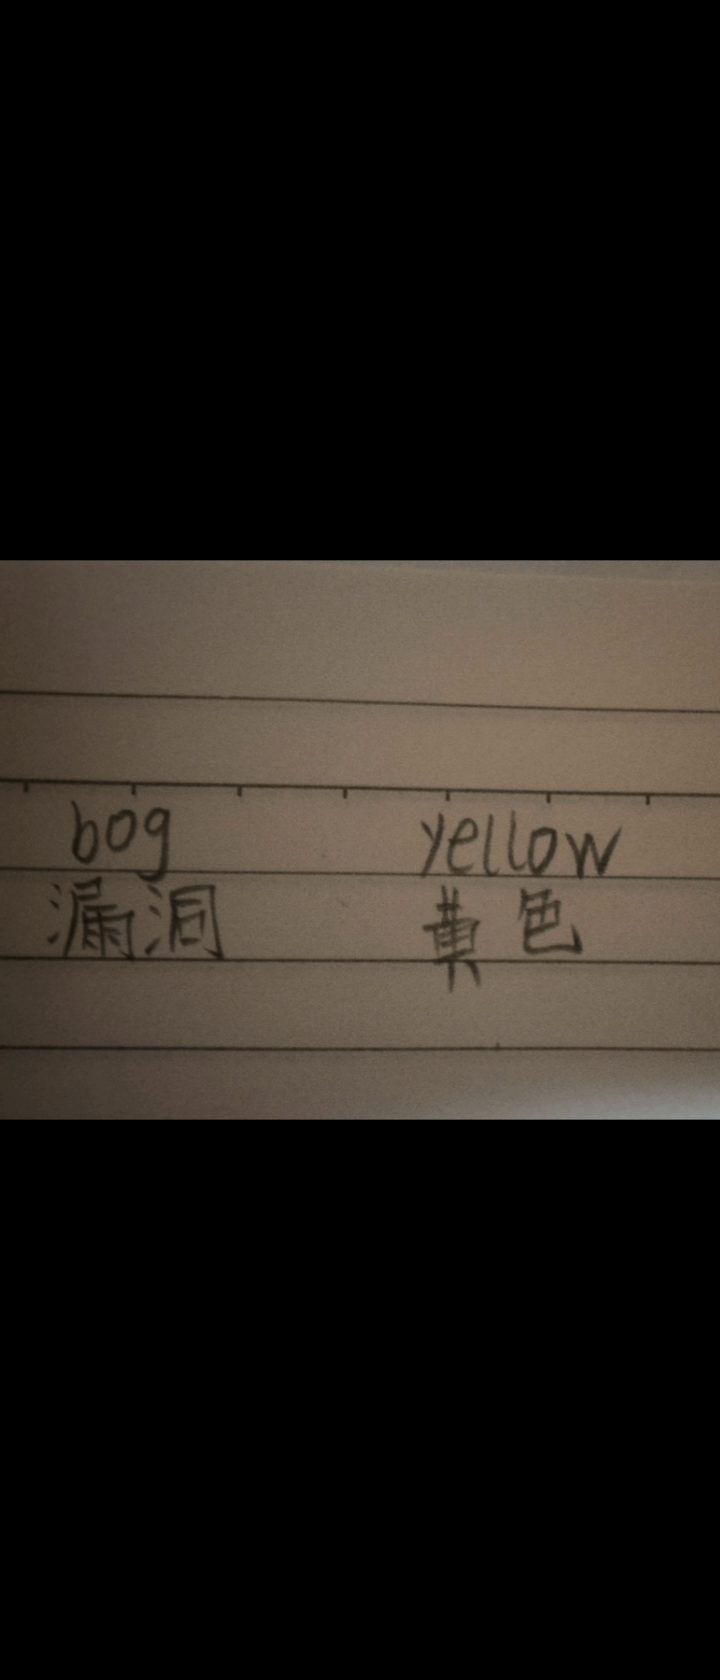 bog yellow
漏洞 黄色